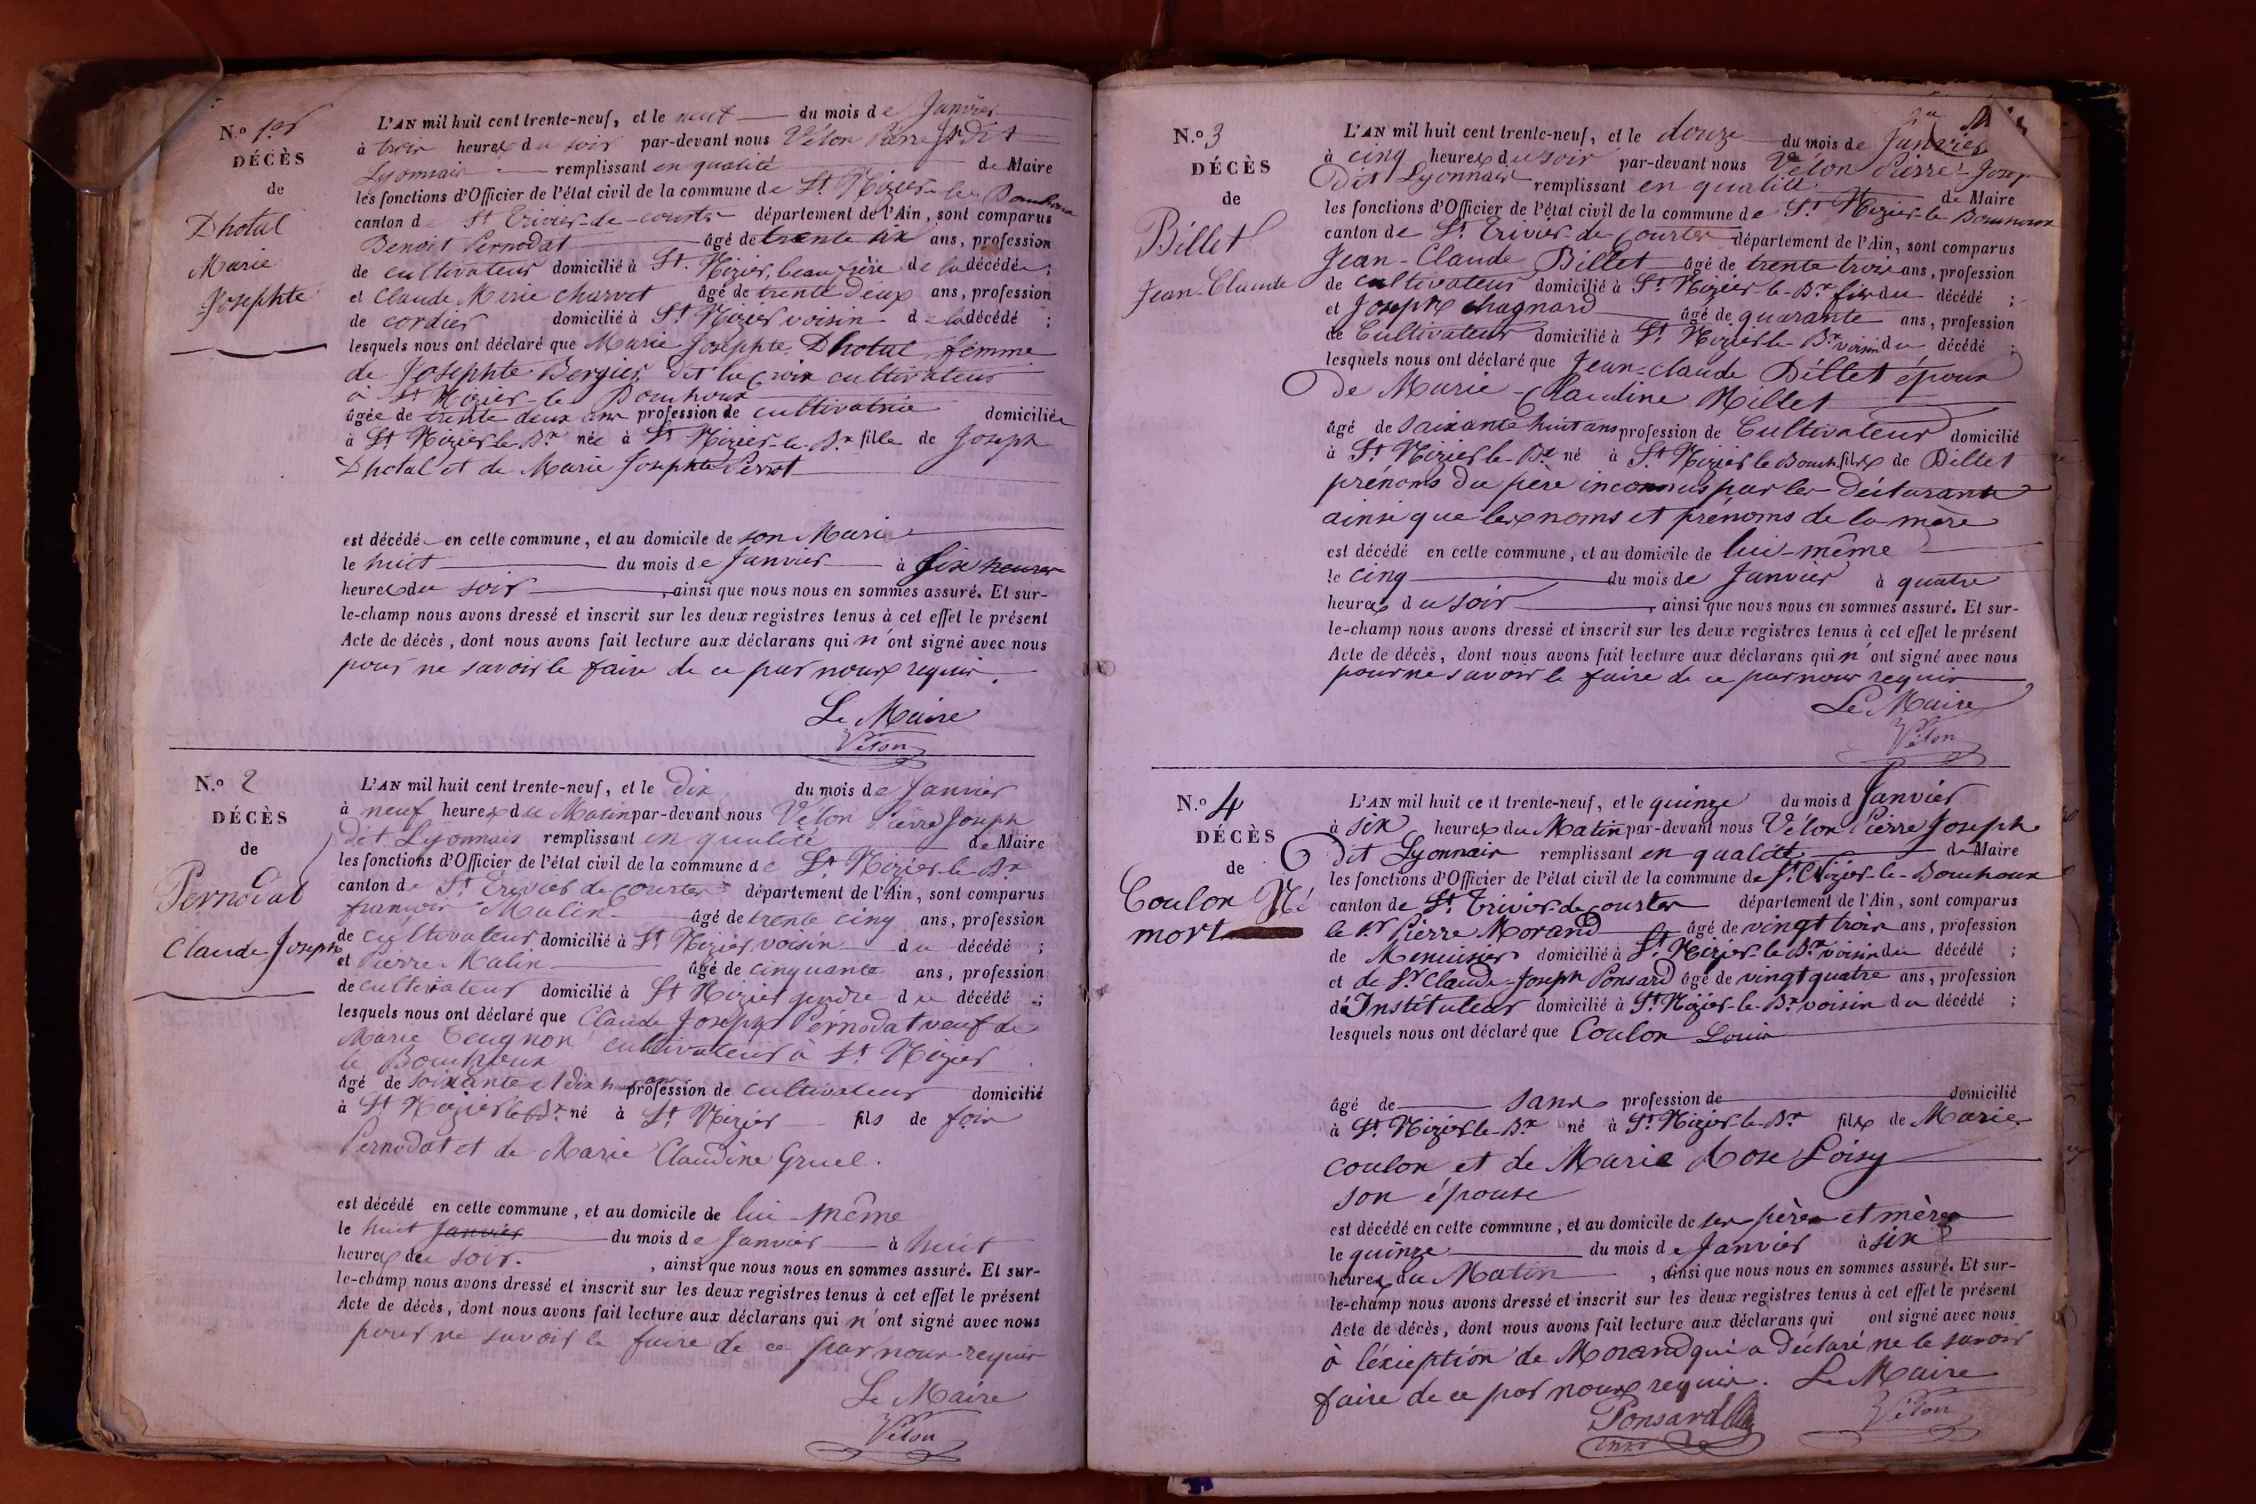 N.o 1er
DÉCÈS
de
Dhotal
Marie
Josephte
L'AN mil huit cent trente-neuf, et le huit du mois de Janvier
à trois heures du soir par-devant nous Vélon Pierre Jh dit
Lyonnais remplissant en qualité de Maire
les fonctions d'Officier de l'état civil de la commune de St Nizier-le-Bouchoux
canton de St Trivier-de-courtes département de l'Ain, sont comparus
Benoit Pernodat âgé de trente six ans, profession
de cultivateur domicilié à St. Nizier, beau-frère de la décédée;
et Claude Marie charvet âgé de trente deux ans, profession
de cordier domicilié à St Nizier voisin de la décédé;
lesquels nous ont déclaré que Marie Josephte Dhotal femme
de Josephte Bergier dit la croix cultivateur
à St Nizier-le Bouchoux
âgée de trente deux ans profession de cultivatrice domiciliée
à St Nizier le Bx née à St Nizier-le-Bx fille de Joseph
Dhotal et de Marie Josephte Perrot
est décédée en cette commune, et au domicile de son Mari
le huit du mois de Janvier à six heures
heures du soir, ainsi que nous nous en sommes assuré. Et sur-
le-champ nous avons dressé et inscrit sur les deux registres tenus à cet effet le présent
Acte de décès, dont nous avons fait lecture aux déclarans qui n'ont signé avec nous
pour ne savoir le faire de ce par nous requis.
Le Maire
Vélon
N.o 2
DÉCÈS
de
Pernodat
Claude-Joseph
L'AN mil huit cent trente-neuf, et le dix du mois de Janvier
à neuf heures du Matin par-devant nous Vélon Pierre Joseph
dit Lyonnais remplissant en qualité de Maire
les fonctions d'Officier de l'état civil de la commune de St Nizier-le-Bx
canton de St Trivier de Courtes département de l'Ain, sont comparus
françois Malin âgé de trente cinq ans, profession
de cultivateur domicilié à St Nizier voisin du décédé;
et Pierre Malin âgé de cinquante ans, profession
de cultivateur domicilié à St Nizier gendre du décédé;
lesquels nous ont déclaré que Claude Joseph Pernodat veuf de
Marie Teugnon cultivateur à St Nizier
le Bouchoux
âgé de soixante et dix huit ans profession de cultivateur domicilié
à St Nizier le Bx né à St Nizier fils de foix
Pernodat et de Marie Claudine Gruel.
est décédé en cette commune, et au domicile de lui-même
le huit Janvier du mois de Janvier à huit
heures du soir., ainsi que nous nous en sommes assuré. Et sur-
le-champ nous avons dressé et inscrit sur les deux registres tenus à cet effet le présent
Acte de décès, dont nous avons fait lecture aux déclarans qui n'ont signé avec nous
pour ne savoir le faire de ce par nous requis
Le Maire
Vélon
N.o 3
DÉCÈS
de
Billet
Jean-Claude
L'AN mil huit cent trente-neuf, et le douze du mois de Janvier
à cinq heures du soir par-devant nous Vélon Pierre-Josep
dit Lyonnais remplissant en qualité de Maire
les fonctions d'Officier de l'état civil de la commune de St Nizier-le Bouchoux
canton de St. Trivier de Courtes département de l'Ain, sont comparus
Jean-Claude Billet âgé de trente trois ans, profession
de cultivateur domicilié à St Nizier-le-Bx fils du décédé;
et Joseph chagnard âgé de quarante ans, profession
de Cultivateur domicilié à St Nizier le-Bx voisin du décédé;
lesquels nous ont déclaré que Jean-claude Billet époux
De Marie-Claudine Millet
âgé de soixante huit ans profession de Cultivateur domicilié
à St Nizier le-Bx né à St Nizier le Bouch. fils de Billet
prénoms du père inconnus par les déclarants
ainsi que les noms et prénoms de la mère
est décédé en cette commune, et au domicile de lui-même
le cinq du mois de Janvier à quatre
heures du soir, ainsi que nous nous en sommes assuré. Et sur-
le-champ nous avons dressé et inscrit sur les deux registres tenus à cet effet le présent
Acte de décès, dont nous avons fait lecture aux déclarans qui n'ont signé avec nous
pour ne savoir le faire de ce par nous requis
Le Maire
Vélon
N.o 4
DÉCÈS
de
Coulon Né
mort
L'AN mil huit cent trente-neuf, et le quinze du mois d Janvier
à six heures du Matin par-devant nous Vélon Pierre Joseph
dit Lyonnais remplissant en qualité de Maire
les fonctions d'Officier de l'état civil de la commune de St Nizier-le-Bouchoux
canton de St. Trivier-de-courtes département de l'Ain, sont comparus
le Sr Pierre Morand âgé de vingt trois ans, profession
de Menuisier domicilié à St Nizier-le-Bx voisin du décédé;
et de Sr Claude-Joseph Ponsard âgé de vingt quatre ans, profession
d'Instituteur domicilié à St Nizier-le-Bx voisin du décédé;
lesquels nous ont déclaré que Coulon Louis
âgé de sans profession de domicilié
à St. Nizier-le-Bx né à St. Nizier-le-Bx fils de Marie
coulon et de Marie Rose Loisy
son épouse
est décédé en cette commune, et au domicile de ses père et mère
le quinze du mois de Janvier à six
heures du Matin, ainsi que nous nous en sommes assuré. Et sur-
le-champ nous avons dressé et inscrit sur les deux registres tenus à cet effet le présent
Acte de décès, dont nous avons fait lecture aux déclarans qui ont signé avec nous
à l'éxception de Morand qui a déclaré ne le savoir
faire de ce par nous requis. Le Maire
Ponsard Vélon